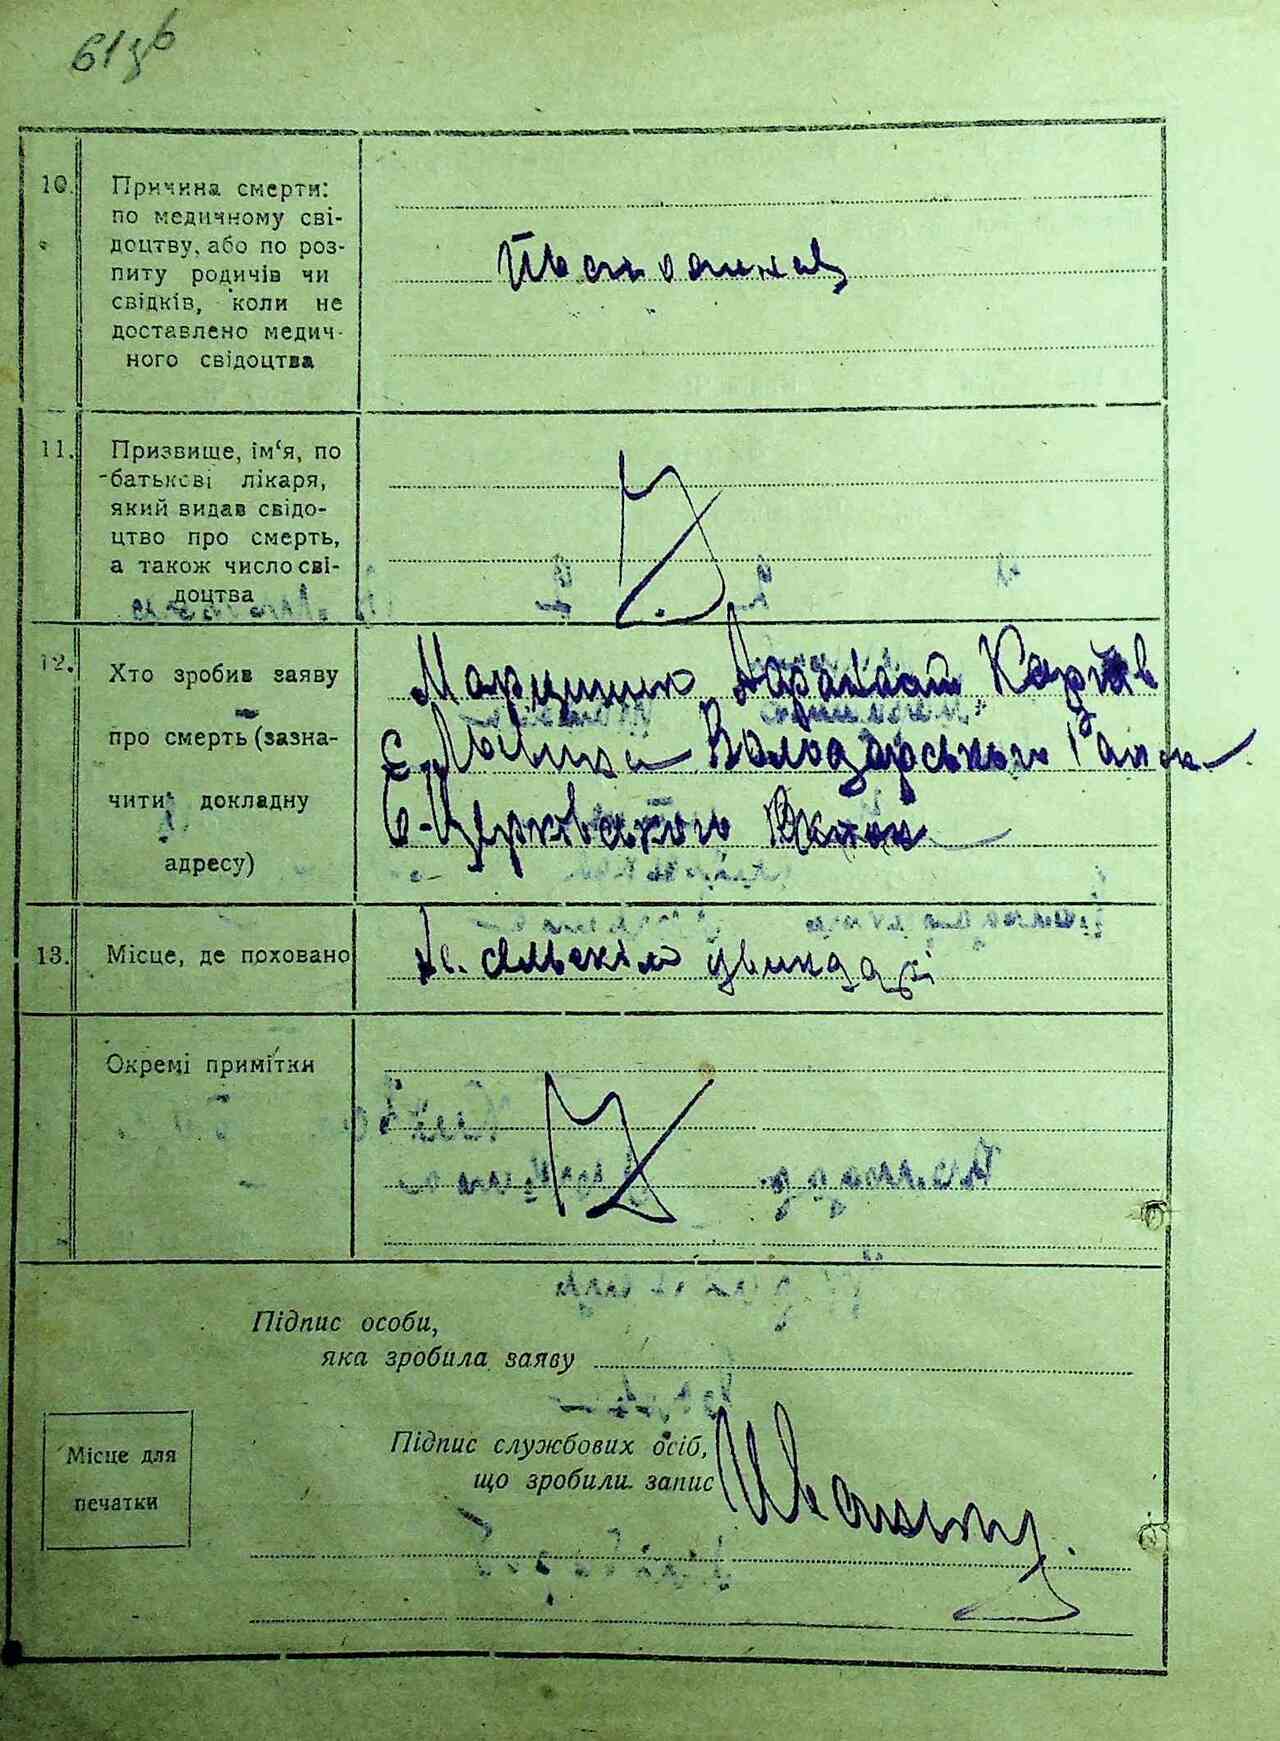 61зв
10.
Причина смерти:
по медичному сві-
доцтву, або по роз-
питу родичів чи
свідків, коли не
доставлено медич-
ного свідоцтва
11.
Призвище, ім‘я, по
батькові лікаря,
який видав свідо-
цтво про смерть,
а також число сві-
доцтва
12.
Хто зробив заяву
про смерть (зазна-
чити докладну
адресу)
Марценюк
Володарського Район
Б-Церківського
13.
Місце, де поховано
На сільскім цвинтарі
Окремі примітки
Підпис особи,
яка зробила заяву
Місце для
печатки
Підпис службових осіб,
що зробили запис